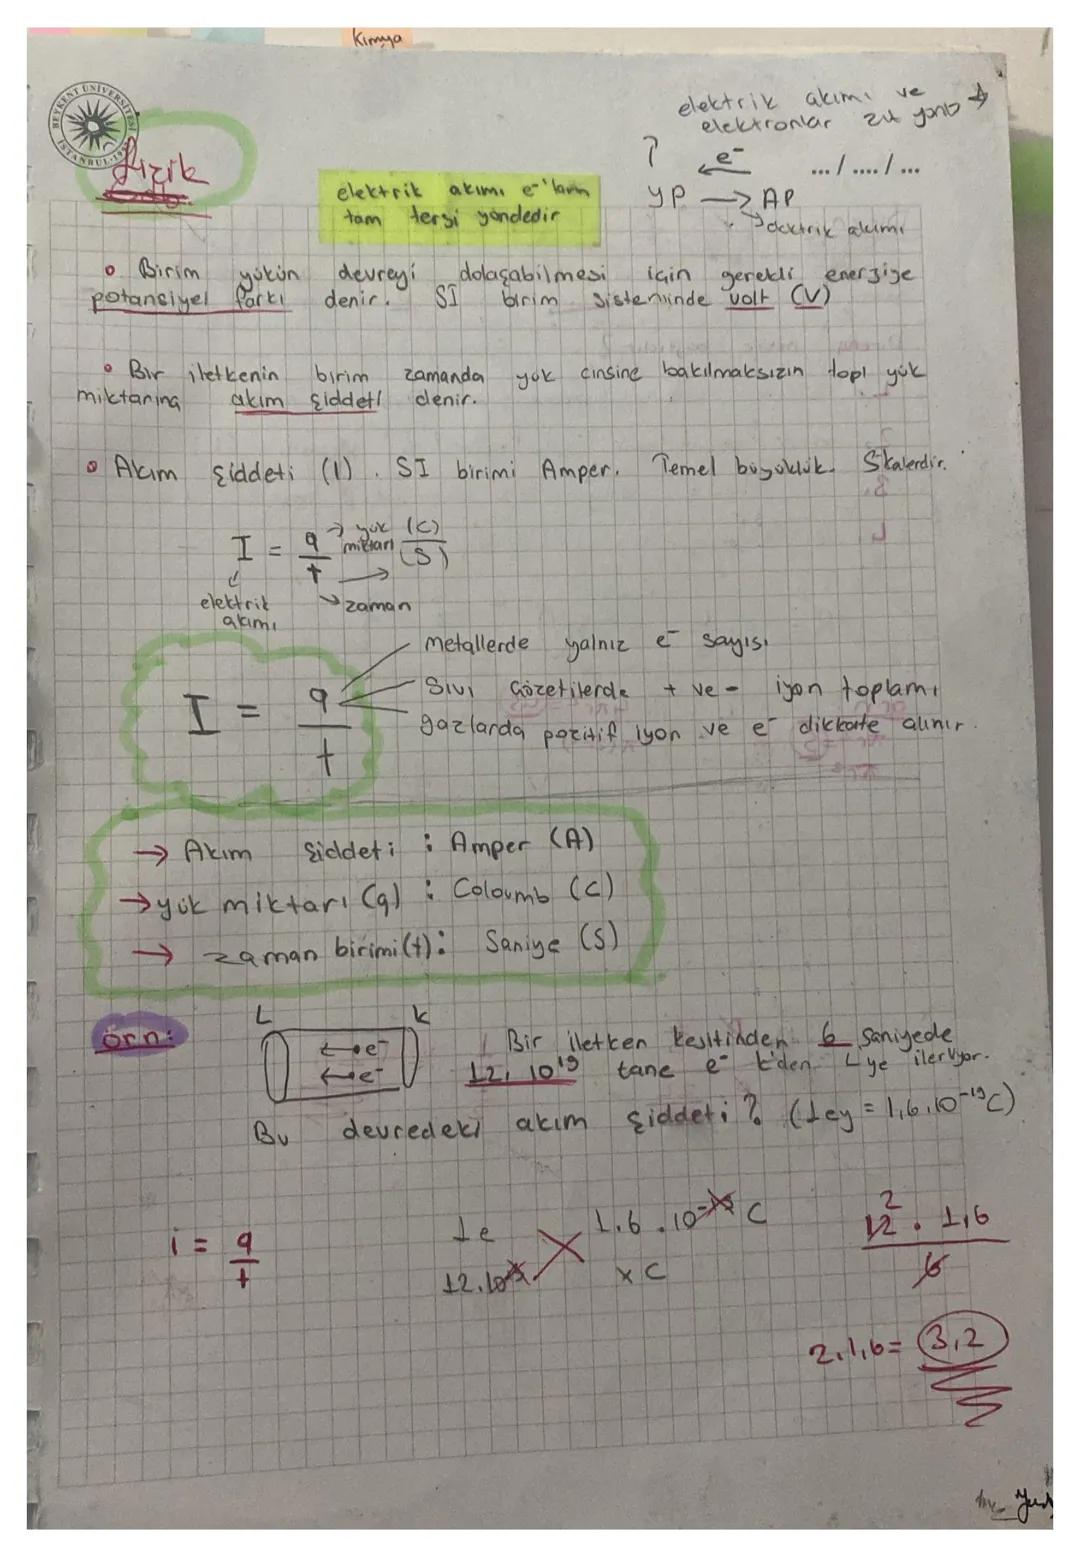 Kimya
BEYKENT ÜNİVERSİTESİ
İSTANBUL-1997
fizik
elektrik akımı ve
elektronlar zıt yönlü
e⁻
... / .... / ...
YP → AP
elektrik akımı
elektrik akımı e⁻'ların
tam tersi yöndedir
Birim yükün devreyi dolaşabilmesi için gerekli enerjiye
potansiyel farkı denir. SI birim sisteminde volt (V)
Bir iletkenin birim zamanda yük cinsine bakılmaksızın topl yük
miktarına akım şiddeti denir.
Akım şiddeti (I). SI birimi Amper. Temel büyüklük. Skalerdir.
I = q/t → yük miktarı (C)/(S)
elektrik akımı
→ zaman
metallerde yalnız e⁻ sayısı
I = q/t
Sıvı çözetilerde + ve - iyon toplamı
gazlarda pozitif iyon ve e⁻ dikkate alınır.
→ Akım şiddeti : Amper (A)
→ yük miktarı (q) : Coloumb (C)
→ zaman birimi(t): Saniye (S)
örn:
L K
←•e⁻
←•e⁻
Bir iletken kesitinden 6 saniyede
12, 10¹⁹ tane e⁻ K'den L ye ilerliyor.
Bu devredeki akım şiddeti? (1ey = 1,6.10⁻¹⁹C)
i = q/t
1e 1.6 .10⁻¹⁹ C
12.10¹⁹ x C
2
12 . 1,6
6
2.1,6= 3,2